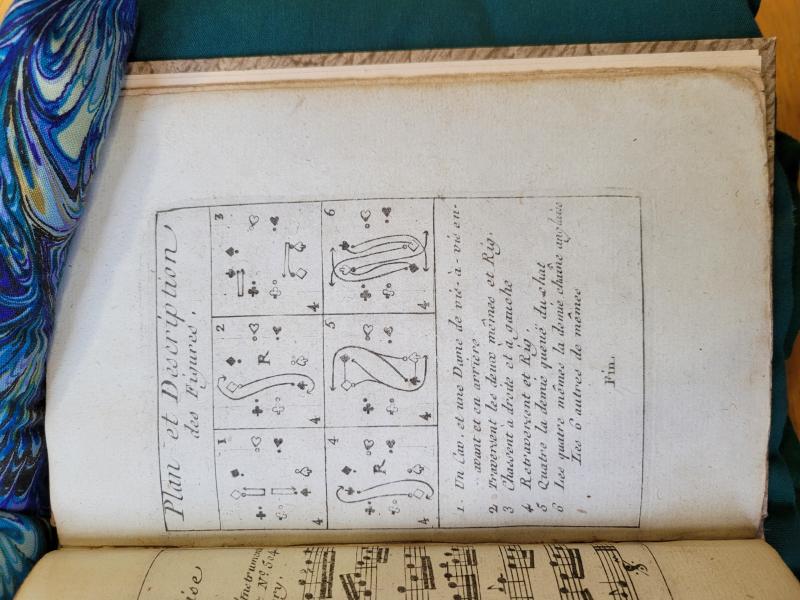 Plan et Description
des Figures.
1
2
3
4
4
4
R
4
5
6
R
4
4
4
1. Un Cav. et une Dame de vis-à-vis en-
avant et en arriére
2 Traversent les deux mêmes et Rig.
3 Chassent à droite et à gauche
4 Retraversent et Rig.
5 Quatre la demie queue du chat
6 Les quatre mêmes la demie chaine anglaise
Les 6 autres de mêmes
Fin.
Nº 504